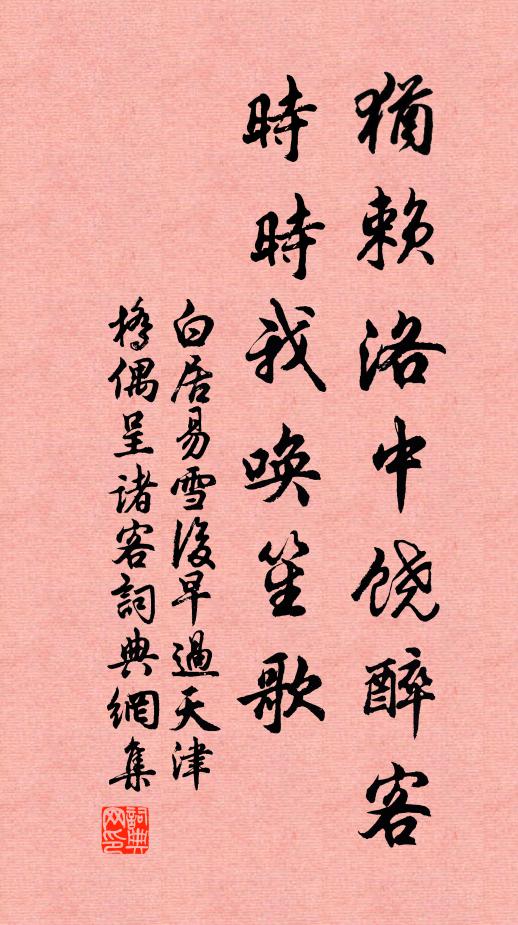 猶赖洛中饶醉客
時時我唤笙歌
白居易雪後早過天津
橋偶呈诸客詞典網集
詞典网印